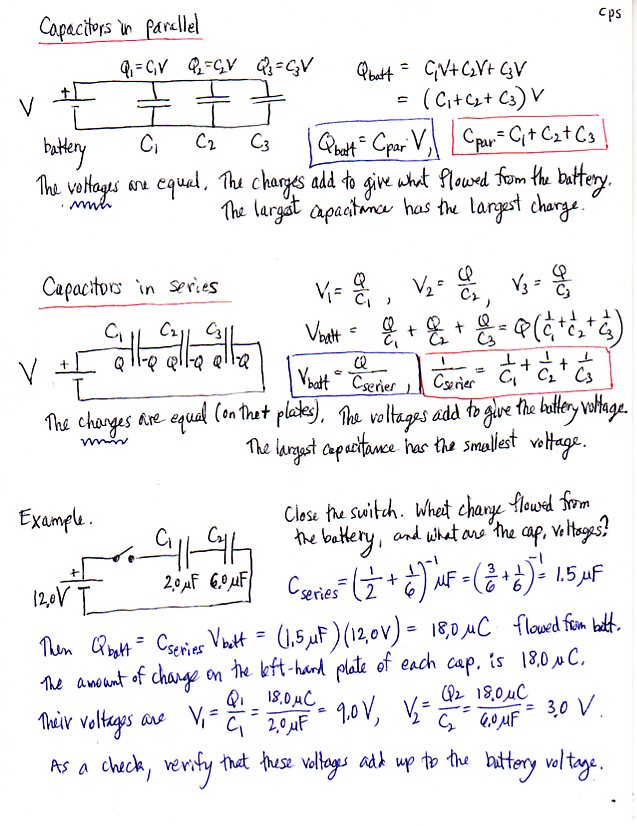 cps
Capacitors in parallel
Q₁=C₁V Q₂=C₂V Q₃=C₃V
Q_batt = C₁V+C₂V+C₃V
= (C₁+C₂+C₃)V
V + battery C₁ C₂ C₃
Q_batt = C_par V, C_par = C₁+C₂+C₃
The voltages are equal. The charges add to give what flowed from the battery.
The largest capacitance has the largest charge.
Capacitors in series
V₁ = Q/C₁ , V₂ = Q/C₂ , V₃ = Q/C₃
V_batt = Q/C₁ + Q/C₂ + Q/C₃ = Q(1/C₁+1/C₂+1/C₃)
C₁ C₂ C₃
V + Q -Q Q -Q Q -Q
V_batt = Q/C_series , 1/C_series = 1/C₁ + 1/C₂ + 1/C₃
The charges are equal (on the + plates). The voltages add to give the battery voltage.
The largest capacitance has the smallest voltage.
Example.
Close the switch. What charge flowed from
the battery, and what are the cap. voltages?
C₁ C₂
+ 12.0V 2.0μF 6.0μF
C_series = (1/2 + 1/6)⁻¹ μF = (3/6 + 1/6)⁻¹ = 1.5 μF
Then Q_batt = C_series V_batt = (1.5μF)(12.0V) = 18.0 μC flowed from batt.
The amount of charge on the left-hand plate of each cap. is 18.0 μC.
Their voltages are V₁ = Q₁/C₁ = 18.0μC/2.0μF = 9.0V, V₂ = Q₂/C₂ = 18.0μC/6.0μF = 3.0 V.
As a check, verify that these voltages add up to the battery voltage.